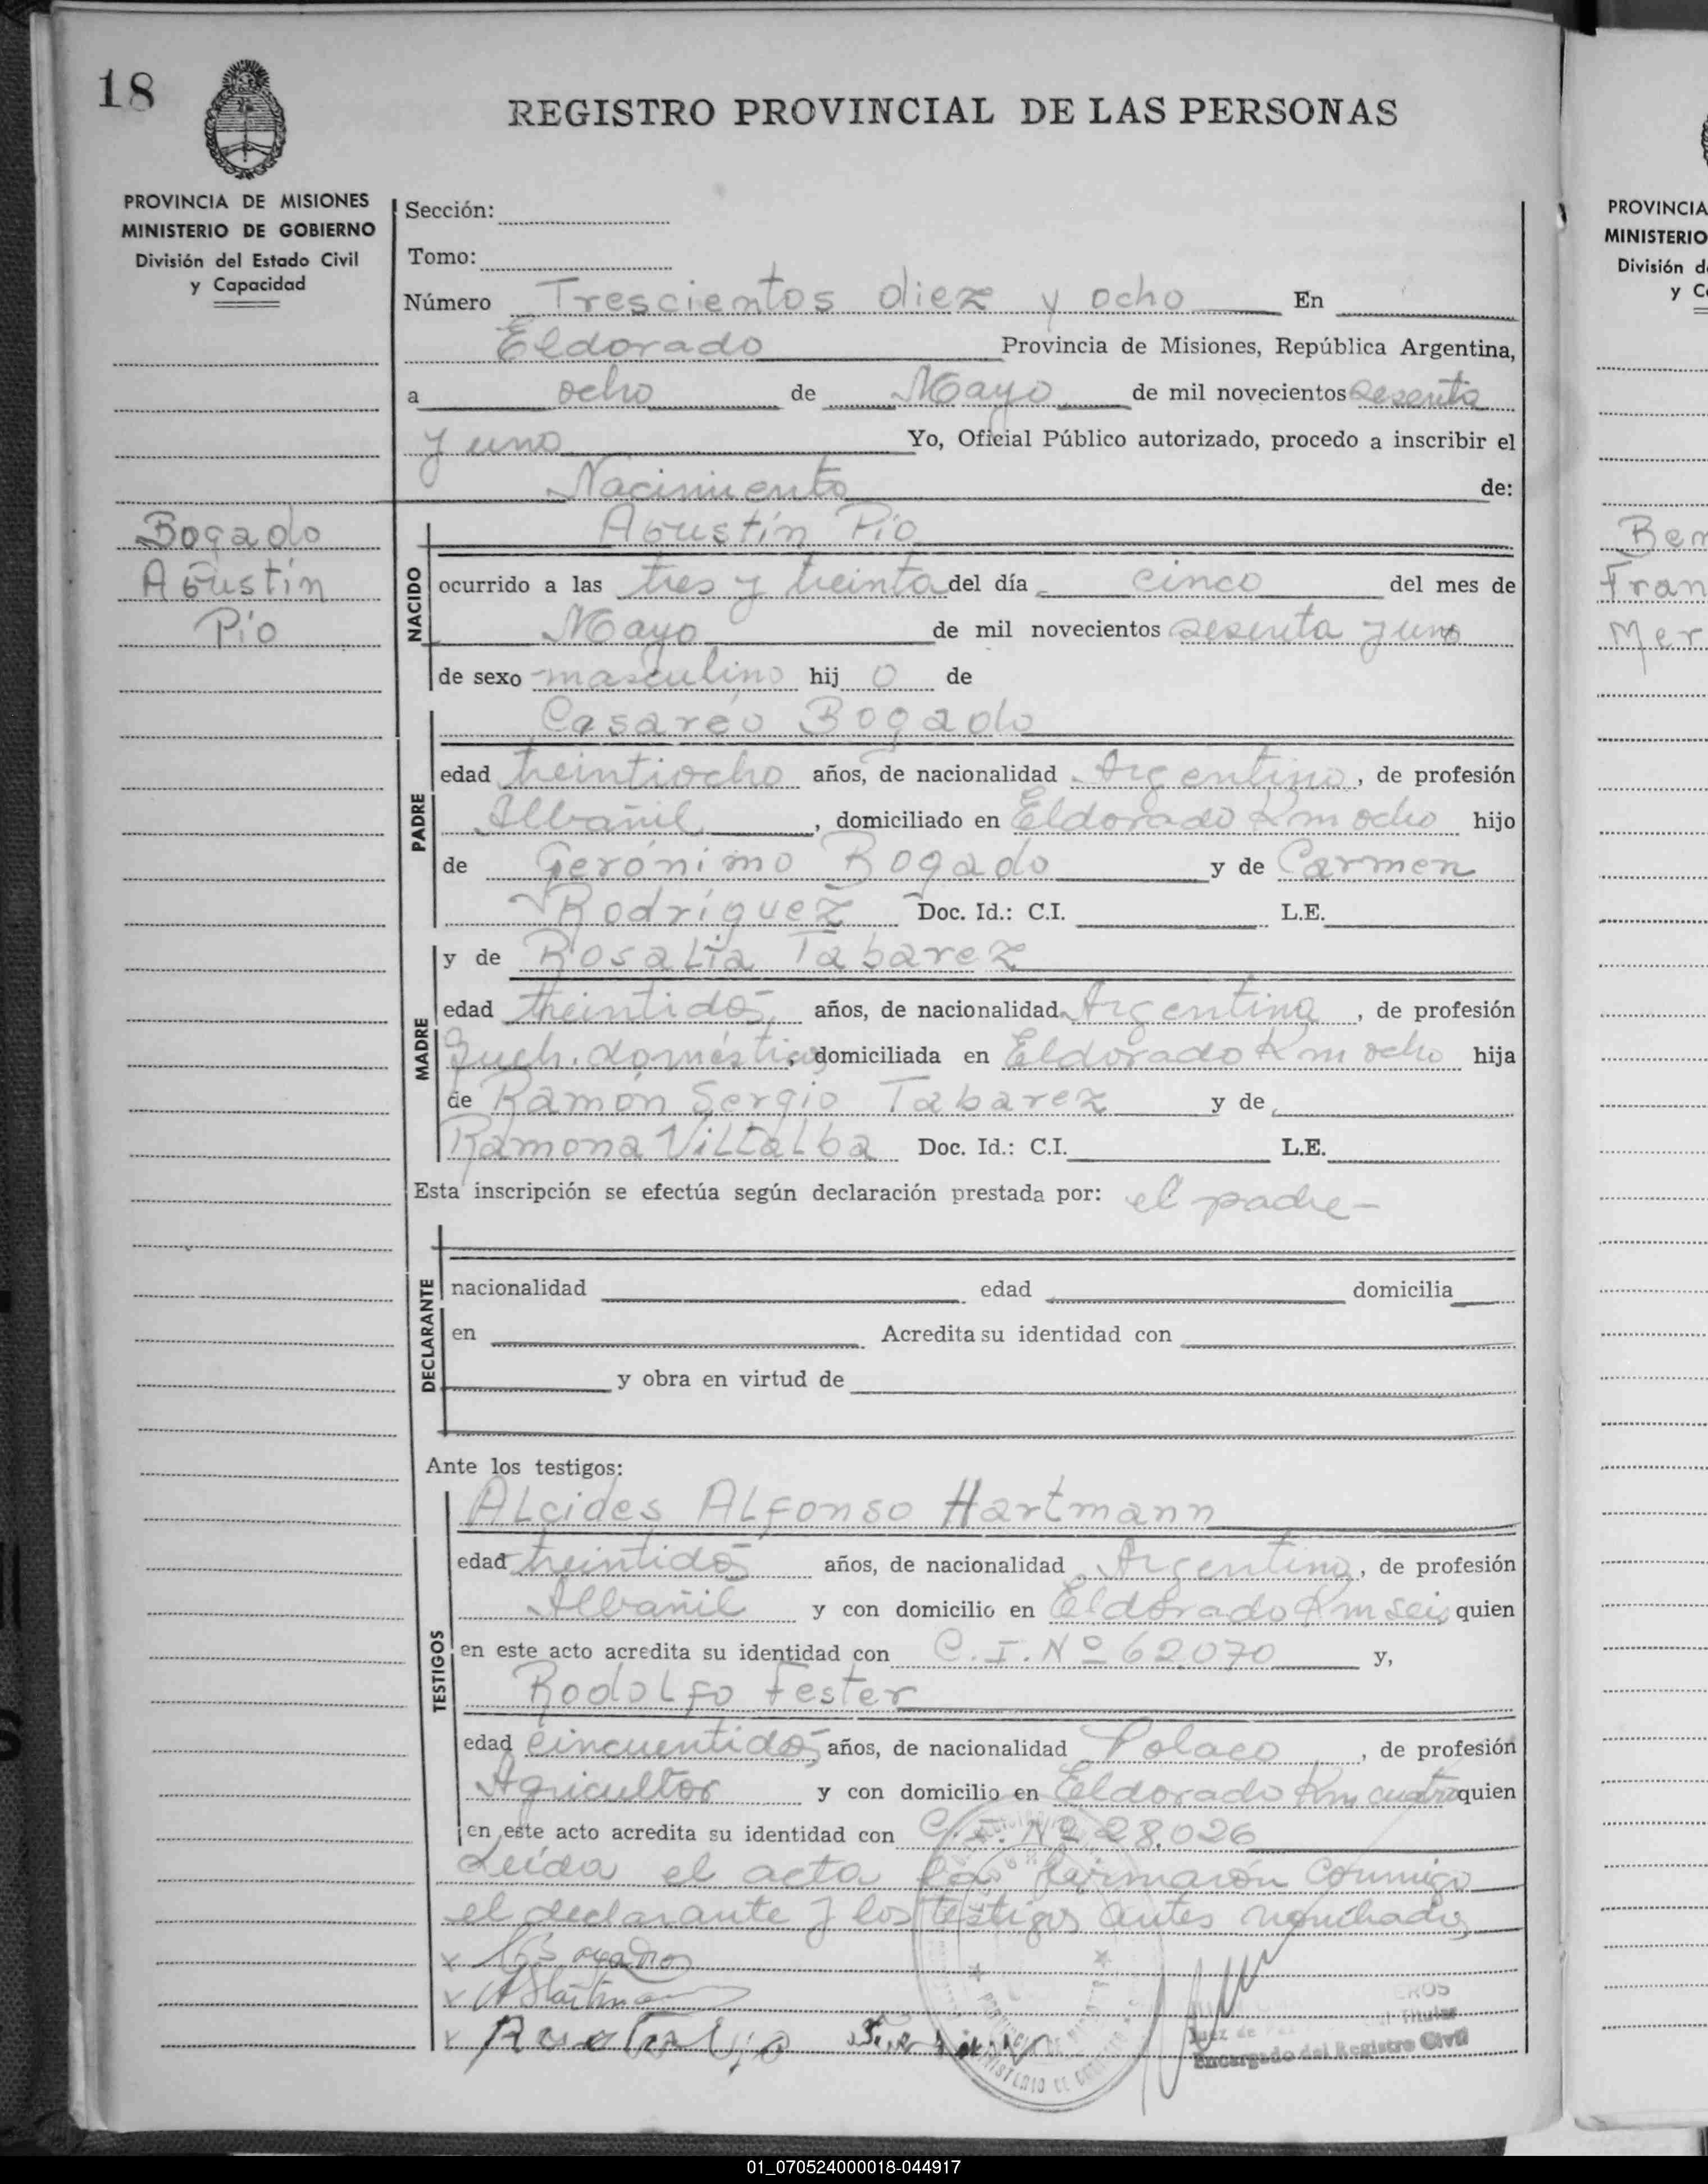 18
REGISTRO PROVINCIAL DE LAS PERSONAS
PROVINCIA DE MISIONES
MINISTERIO DE GOBIERNO
División del Estado Civil
y Capacidad
Bogado
Agustín
Pío
Sección:
Tomo:
Número Trescientos diez y ocho En
Eldorado Provincia de Misiones, República Argentina,
a ocho de Mayo de mil novecientos sesenta
y uno Yo, Oficial Público autorizado, procedo a inscribir el
Nacimiento de:
NACIDO
Agustín Pío
ocurrido a las tres y treinta del día cinco del mes de
Mayo de mil novecientos sesenta y uno
de sexo masculino hij o de
PADRE
Casareo Bogado
edad treintiocho años, de nacionalidad Argentino, de profesión
Albañil, domiciliado en Eldorado Km ocho hijo
de Gerónimo Bogado y de Carmen
Rodríguez Doc. Id.: C.I. L.E.
MADRE
y de Rosalía Tabarez
edad treintidos años, de nacionalidad Argentina, de profesión
Queh. domésticos, domiciliada en Eldorado Km ocho hija
de Ramón Sergio Tabarez y de
Ramona Villalba Doc. Id.: C.I. L.E.
Esta inscripción se efectúa según declaración prestada por: el padre-
DECLARANTE
nacionalidad edad domicilia
en Acredita su identidad con
y obra en virtud de
Ante los testigos:
TESTIGOS
Alcides Alfonso Hartmann
edad treintidos años, de nacionalidad Argentino, de profesión
Albañil y con domicilio en Eldorado Km seis quien
en este acto acredita su identidad con C.I. Nº 62.070 y,
Rodolfo Fester
edad cincuentidos años, de nacionalidad Polaco, de profesión
Agricultor y con domicilio en Eldorado Km cuatro quien
en este acto acredita su identidad con C.I. Nº 28.026
Leída el acta la firmaron conmigo
el declarante y los testigos antes nombrados
x Bogado
x AHartmann
x
Juez de
Titular
Encargado del Registro Civil
PROVINCIA
MINISTERIO
División d
y C
Ben
Fran
Mer
01_070524000018-044917